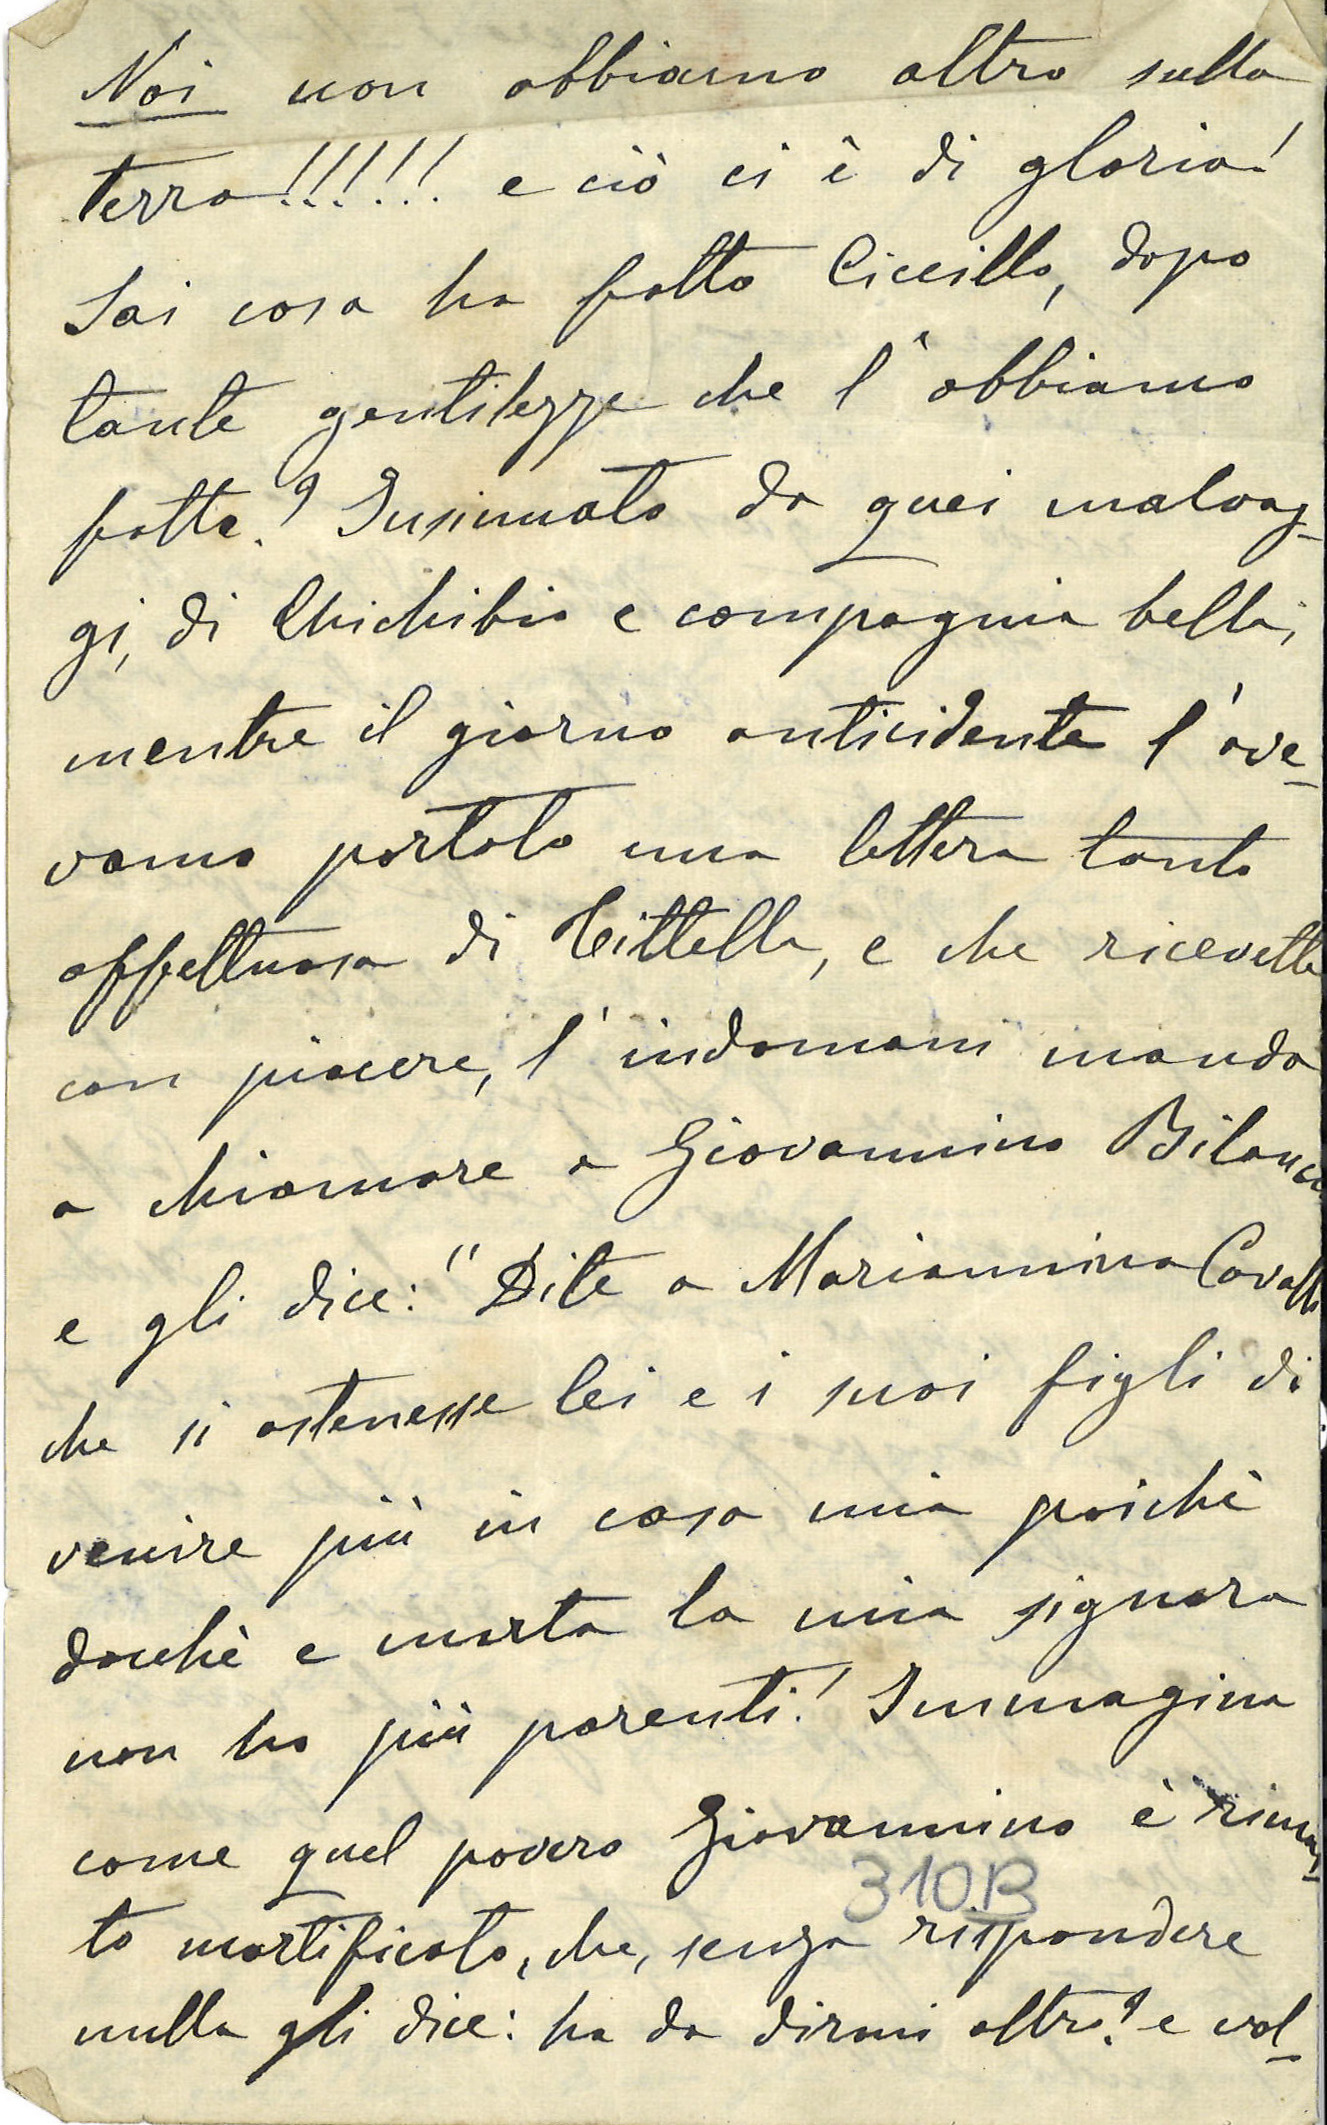 Noi non abbiamo altro sulla
terra!!!!!! e ciò ci è di gloria!
Sai cosa ha fatto Ciccillo, dopo
tante gentilezze che l'abbiamo
fatte? Insinuato da quei malvag-
gi, di Chichibio e compagnia bella,
mentre il giorno anticidente l'ave-
vamo portato una lettera tanto
affettuosa di Titella, e che ricevette
con piacere, l'indomani manda
a chiamare a Giovannino Bilancia
e gli dice: "Dite a Mariannina Cavalli
che si astenesse lei e i suoi figli di
venire più in casa mia poichè
dacchè e morta la mia signora
non ho più parenti! Immagina
come quel povero Giovannino è rimas-
310B
to mortificato, che, senza rispondere
nulla gli dice: ha da dirmi altro? e vol-